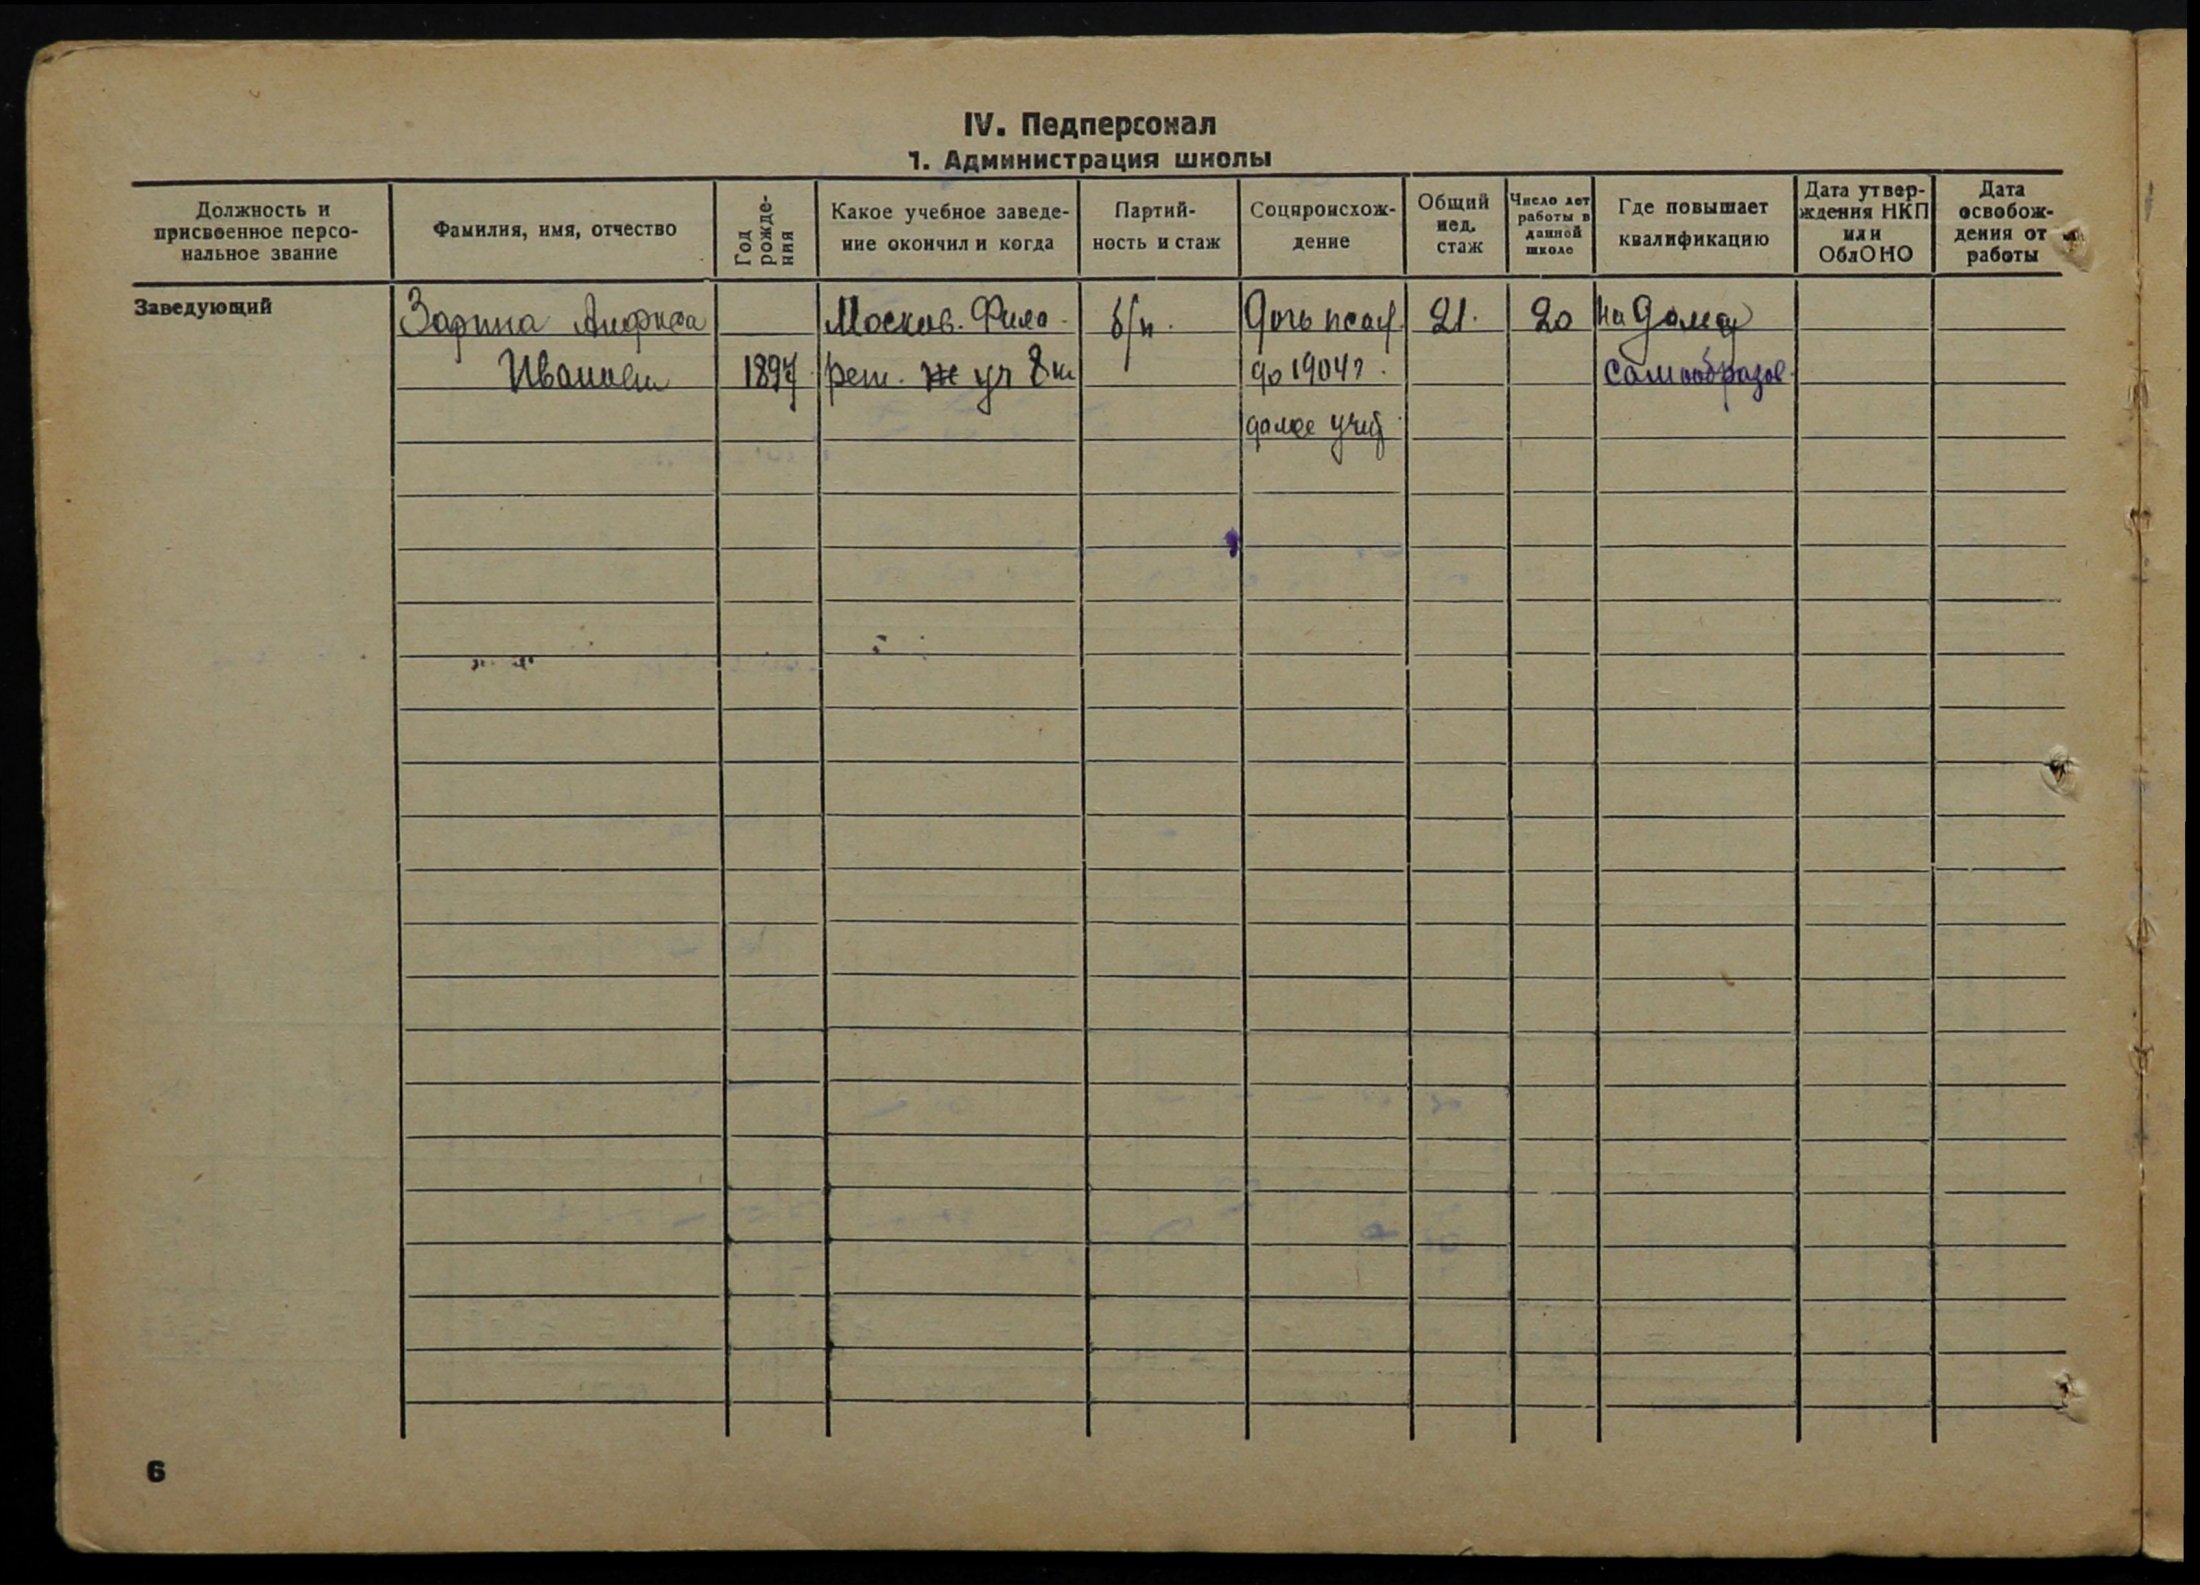 IV. Педперсонал
1. Администрация школы
Должность и
присвоенное персо-
нальное звание
Фамилия, имя, отчество
Год
рожде-
ния
Какое учебное заведе-
ние окончил и когда
Партий-
ность и стаж
Соцпроисхож-
дение
Общий
пед.
стаж
Число лет
работы в
данной
школе
Где повышает
квалификацию
Дата утвер-
ждения НКП
или
ОблОНО
Дата
освобож-
дения от
работы
Заведующий
Зарина Анфиса
Ивановн
1897
Москов. Фила-
рет. уч 8 кл
б/п.
Дочь псал
до 1904 г.
далее учит
21.
20
на дому
самообразов.
6